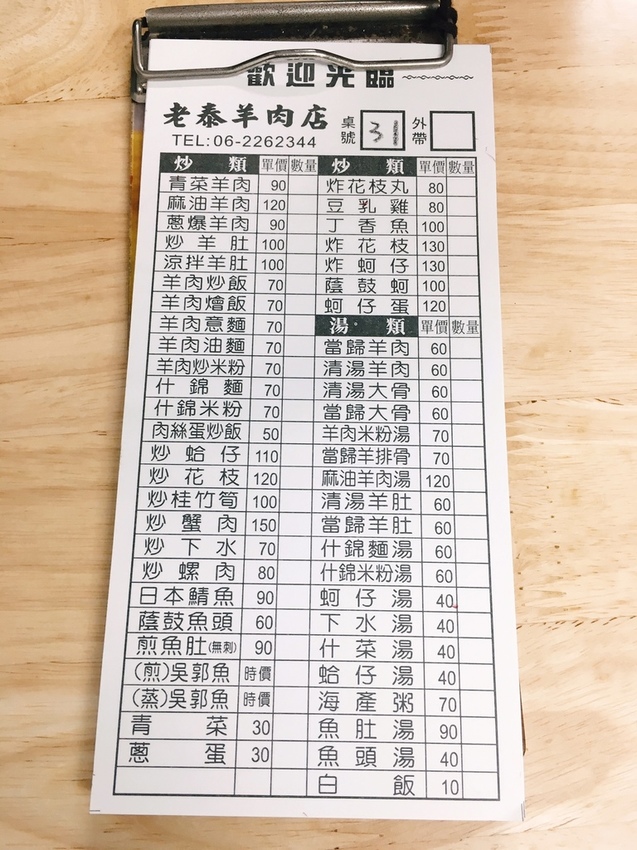 歡迎光臨
老泰羊肉店
TEL:06-2262344
桌號 3 外帶
炒類 單價 數量
青菜羊肉 90
麻油羊肉 120
蔥爆羊肉 90
炒羊肚 100
涼拌羊肚 100
羊肉炒飯 70
羊肉燴飯 70
羊肉意麵 70
羊肉油麵 70
羊肉炒米粉 70
什錦麵 70
什錦米粉 70
肉絲蛋炒飯 50
炒蛤仔 110
炒花枝 120
炒桂竹筍 100
炒蟹肉 150
炒下水 70
炒螺肉 80
日本鯖魚 90
蔭鼓魚頭 60
煎魚肚(無刺) 90
(煎)吳郭魚 時價
(蒸)吳郭魚 時價
青菜 30
蔥蛋 30
炒類 單價 數量
炸花枝丸 80
豆乳雞 80
丁香魚 100
炸花枝 130
炸蚵仔 130
蔭鼓蚵 100
蚵仔蛋 120
湯類 單價 數量
當歸羊肉 60
清湯羊肉 60
清湯大骨 60
當歸大骨 60
羊肉米粉湯 70
當歸羊排骨 70
麻油羊肉湯 120
清湯羊肚 60
當歸羊肚 60
什錦麵湯 60
什錦米粉湯 60
蚵仔湯 40
下水湯 40
什菜湯 40
蛤仔湯 40
海產粥 70
魚肚湯 90
魚頭湯 40
白飯 10